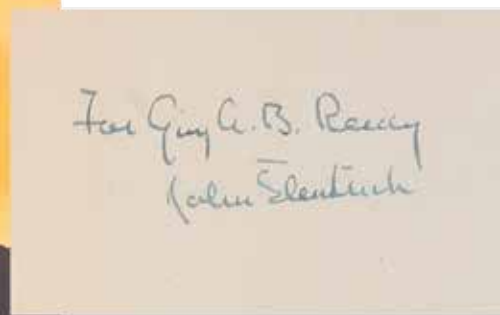 For Guy A. B. Reeay
John Steinbeck